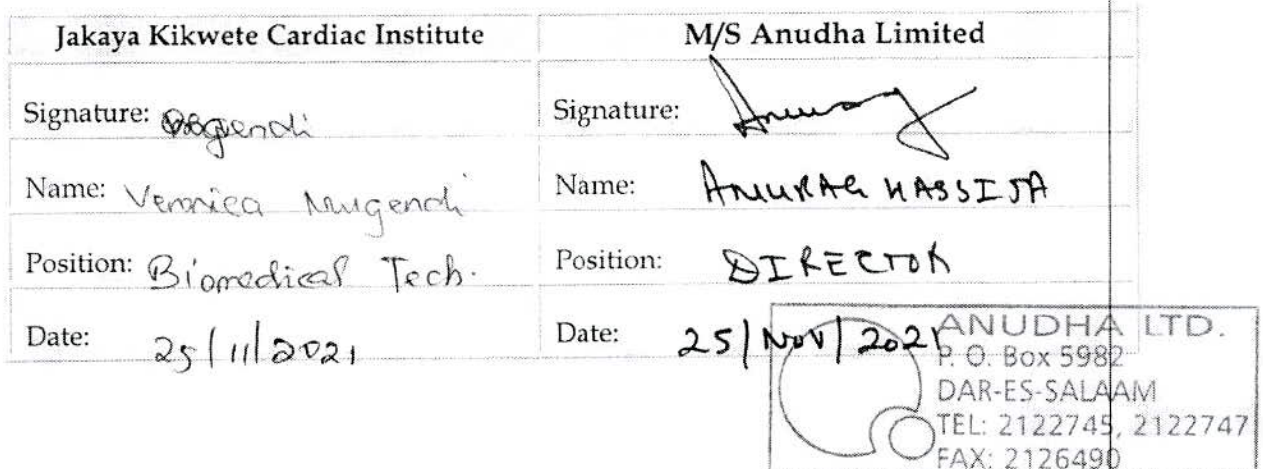 Jakaya Kikwete Cardiac Institute M/S Anudha Limited
Signature: Signature: Anurag
Name: Veronica Mugendi Name: ANURAG HASSIJA
Position: Biomedical Tech. Position: DIRECTOR
Date: 25/11/2021 Date: 25/Nov/2021
ANUDHA LTD.
P. O. Box 5982
DAR-ES-SALAAM
TEL: 2122745, 2122747
FAX: 2126490